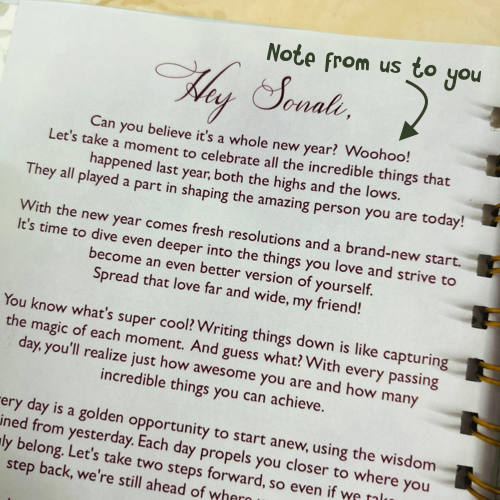 Note from us to you
Hey Sonali,
Can you believe it's a whole new year? Woohoo!
Let's take a moment to celebrate all the incredible things that
happened last year, both the highs and the lows.
They all played a part in shaping the amazing person you are today!
With the new year comes fresh resolutions and a brand-new start.
It's time to dive even deeper into the things you love and strive to
become an even better version of yourself.
Spread that love far and wide, my friend!
You know what's super cool? Writing things down is like capturing
the magic of each moment. And guess what? With every passing
day, you'll realize just how awesome you are and how many
incredible things you can achieve.
day is a golden opportunity to start anew, using the wisdom
from yesterday. Each day propels you closer to where you
belong. Let's take two steps forward, so even if we take
step back, we're still ahead of where